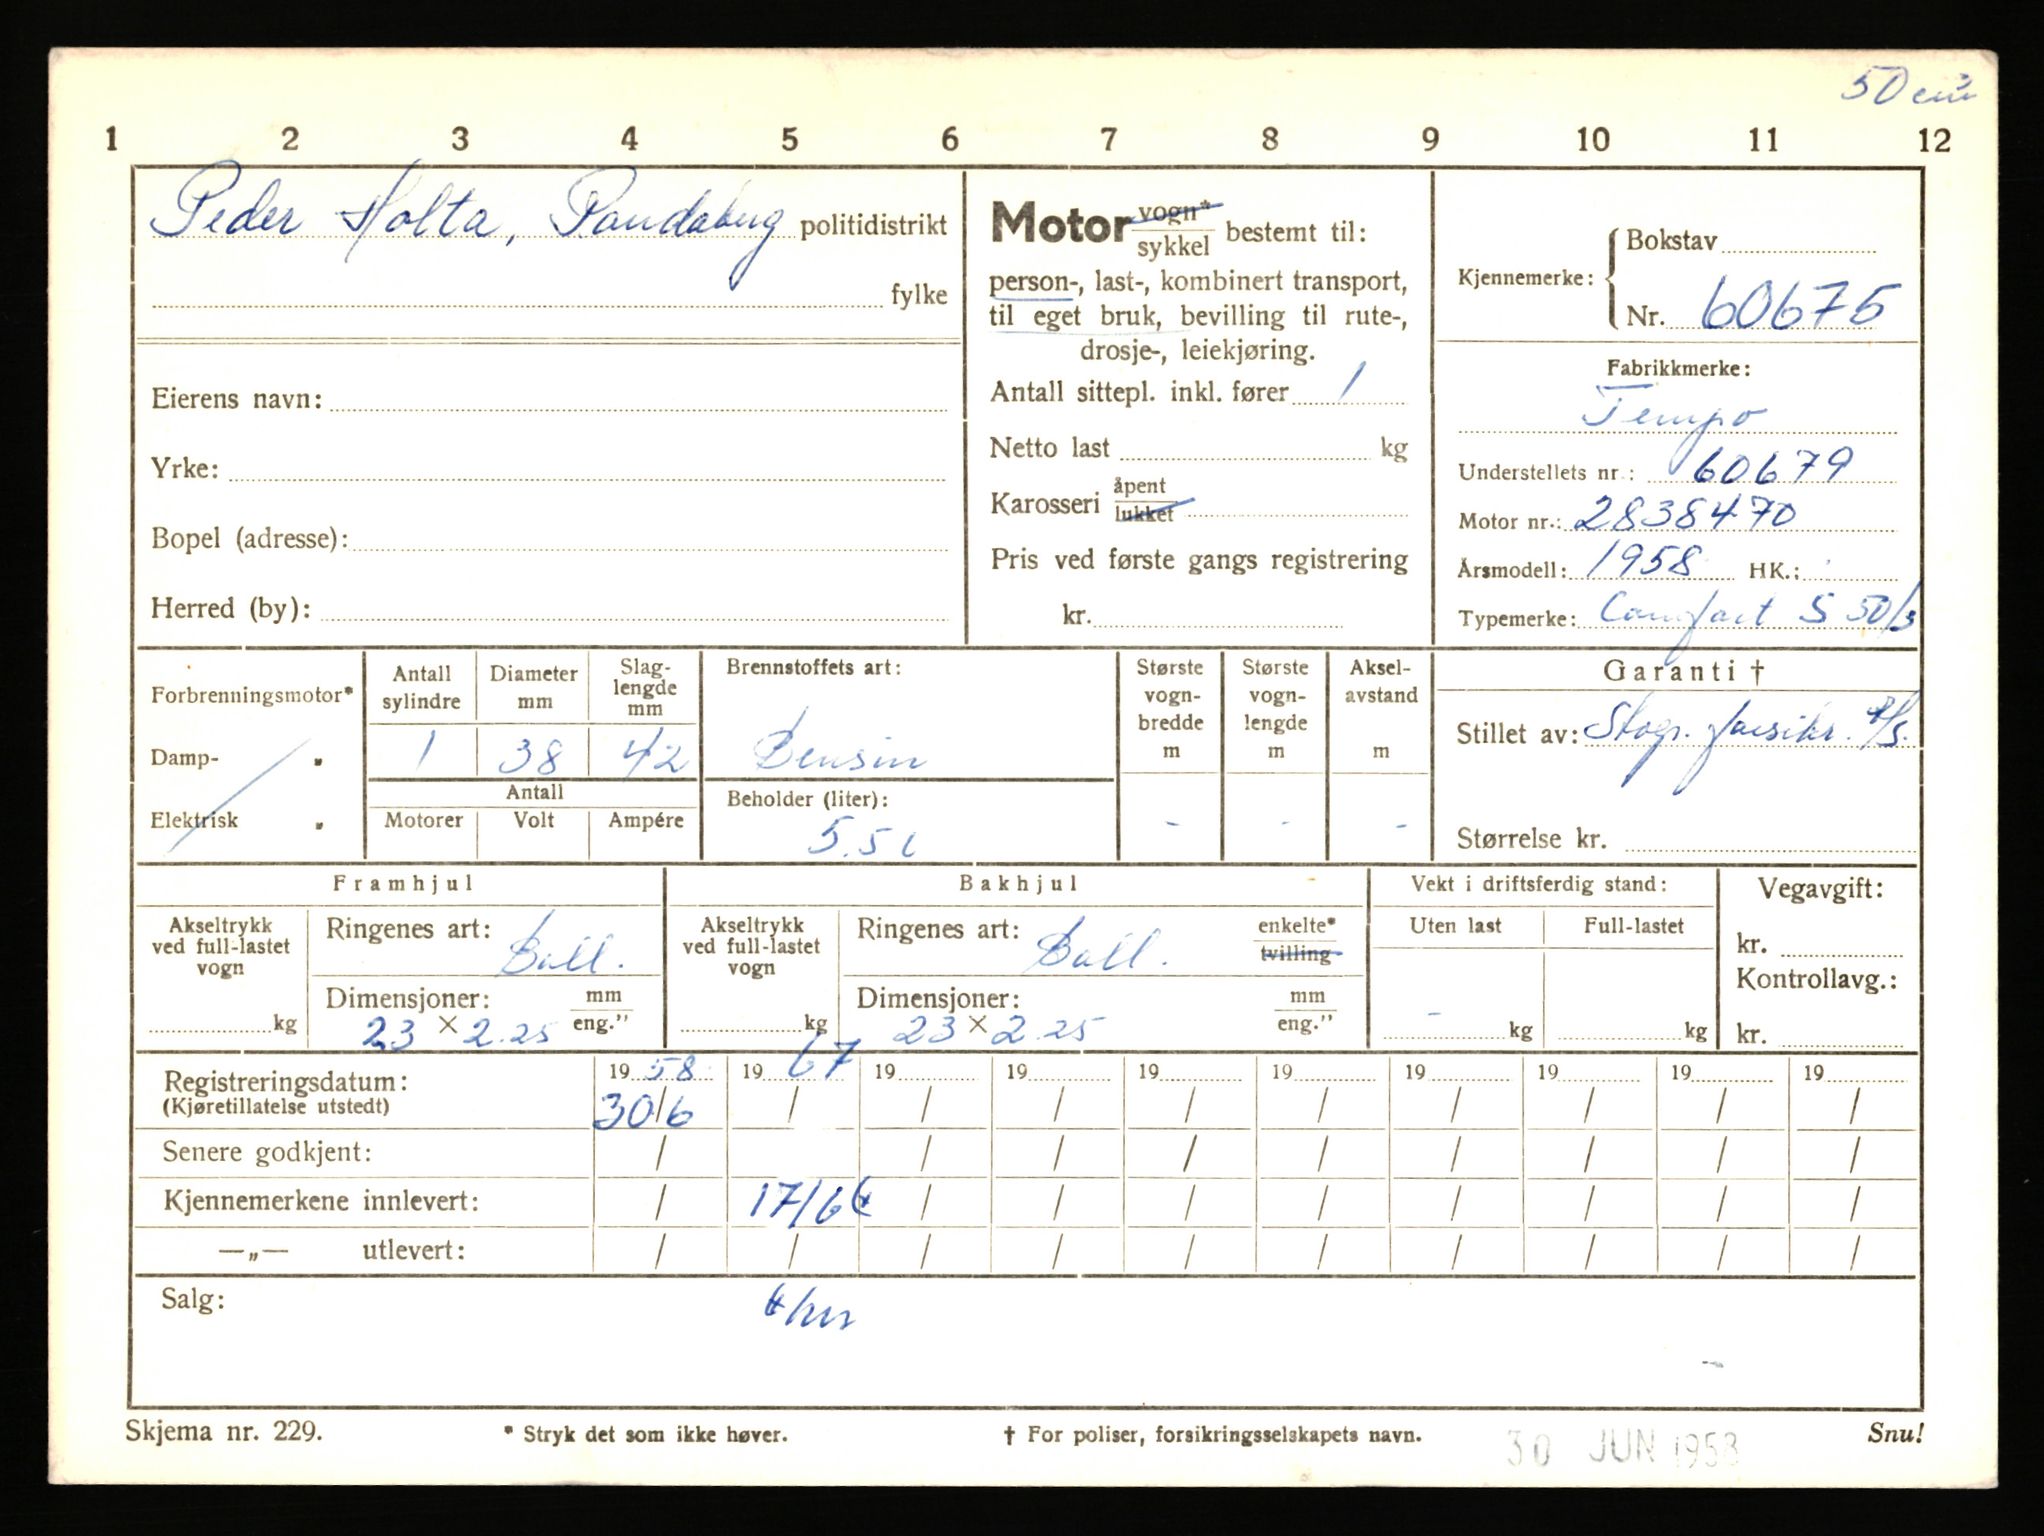 50 cm³
1 2 3 4 5 6 7 8 9 10 11 12
Peder Holta, Randaberg politidistrikt
fylke
Eierens navn:
Yrke:
Bopel (adresse):
Herred (by):
Motor vogn* sykkel bestemt til:
person-, last-, kombinert transport,
til eget bruk, bevilling til rute-,
drosje-, leiekjøring.
Antall sittepl. inkl. fører 1
Netto last kg
Karosseri åpent lukket
Pris ved første gangs registrering
kr.
Kjennemerke: Bokstav
Nr. 60675
Fabrikkmerke:
Tempo
Understellets nr.: 60679
Motor nr.: 2838470
Årsmodell: 1958 HK.:
Typemerke: Comfort S 50/3
Forbrenningsmotor*
Damp- "
Elektrisk "
Antall sylindre
Diameter mm
Slag-lengde mm
1 38 42
Antall
Motorer Volt Ampére
Brennstoffets art:
Bensin
Beholder (liter):
5.5 l
Største vogn-bredde m
-
Største vogn-lengde m
-
Aksel-avstand m
-
Garanti †
Stillet av: Stogr. forsikr. A/S.
Størrelse kr.
Framhjul
Akseltrykk ved full-lastet vogn
kg
Ringenes art: Ball.
Dimensjoner: mm eng."
23 × 2.25
Bakhjul
Akseltrykk ved full-lastet vogn
kg
Ringenes art: Ball. enkelte* tvilling
Dimensjoner: mm eng."
23 × 2.25
Vekt i driftsferdig stand:
Uten last Full-lastet
- kg kg
Vegavgift:
kr.
Kontrollavg.:
kr.
Registreringsdatum: 19 58 19 67 19 19 19 19 19 19 19 19
(Kjøretillatelse utstedt) 30/6 / / / / / / / / /
Senere godkjent: / / / / / / / / /
Kjennemerkene innlevert: / 17/6 / / / / / / / /
—„— utlevert: / / / / / / / / / /
Salg:
Skjema nr. 229.
* Stryk det som ikke høver.
† For poliser, forsikringsselskapets navn.
30 JUN 1958
Snu!